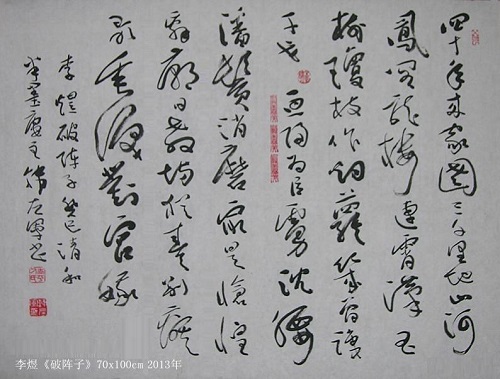 四十年来家國三千里地山河
鳳阁龍樓連霄漢玉
樹瓊枝作烟蘿幾曾識
干戈一旦归為臣虜沈腰
潘鬢消磨最是倉惶
辞廟日教坊猶奏别離
歌垂淚對宮娥
李煜破阵子癸巳清和
半墨廬主
李煜《破阵子》70x100cm 2013年